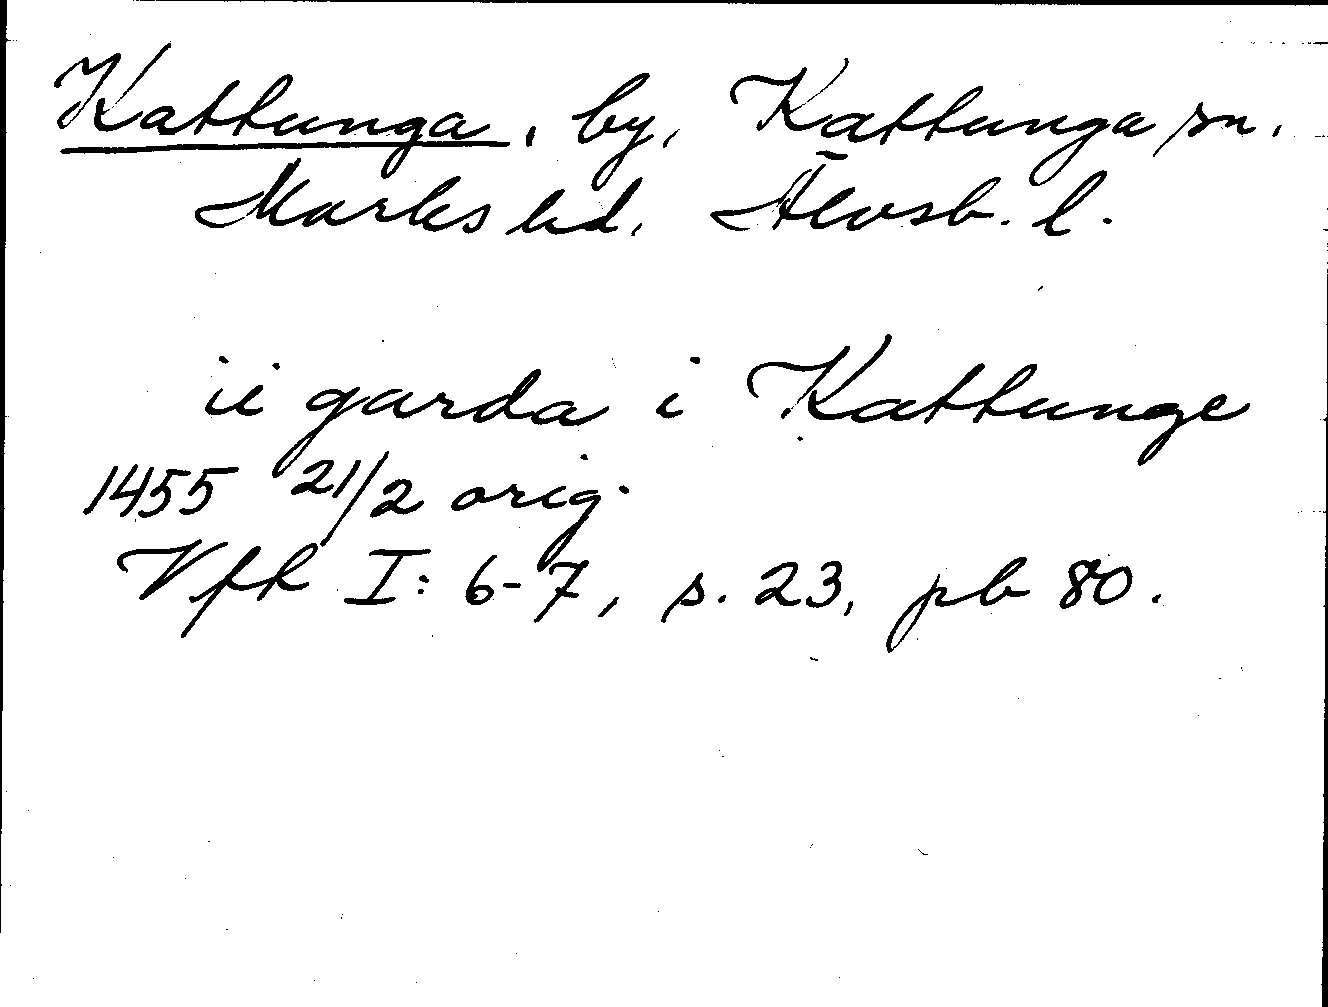 Kattunga, by, Kattunga sn.
Marks hd. Älvsb. l.
ii garda i Kattunge
1455 21/2 orig.
Vfh I: 6-7, s. 23, pb 80.